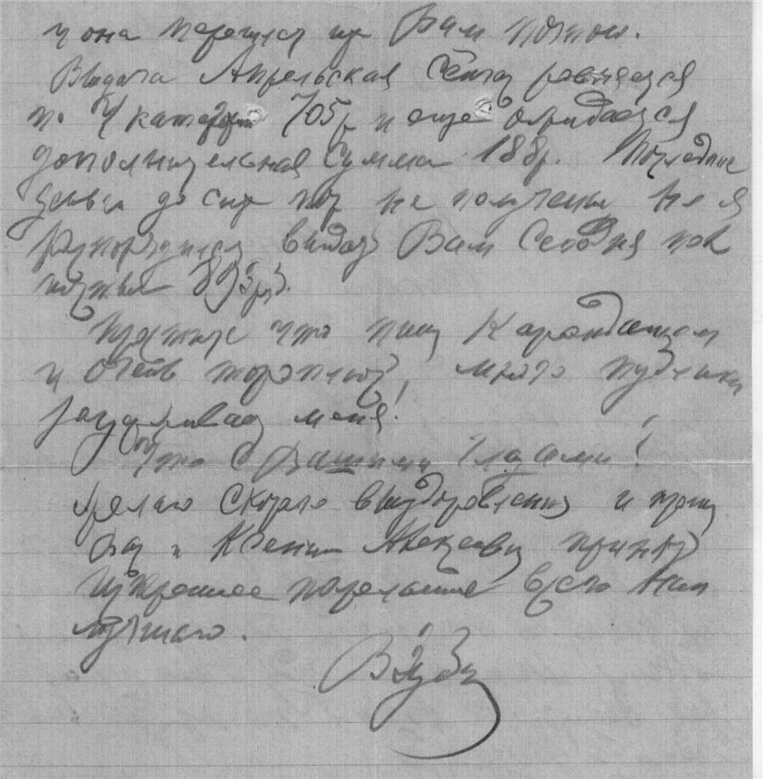 и она перешлет их Вам потом.
Выдача Апрельская Сейчас равняется
по 4 категории 705р и еще ожидается
дополнительная Сумма 188р. Последние
деньги до сих пор не получены но я
распорядился выдать Вам Сегодня
893 руб.
что пишу Карандашом
и очень тороплюсь, много публики
меня!
Что с Вашими Глазами!
Желаю Скорого выздоровления и прошу
Вас и Ксению Алексеевну принять
Искреннее пожелание всего Наи
лучшаго.